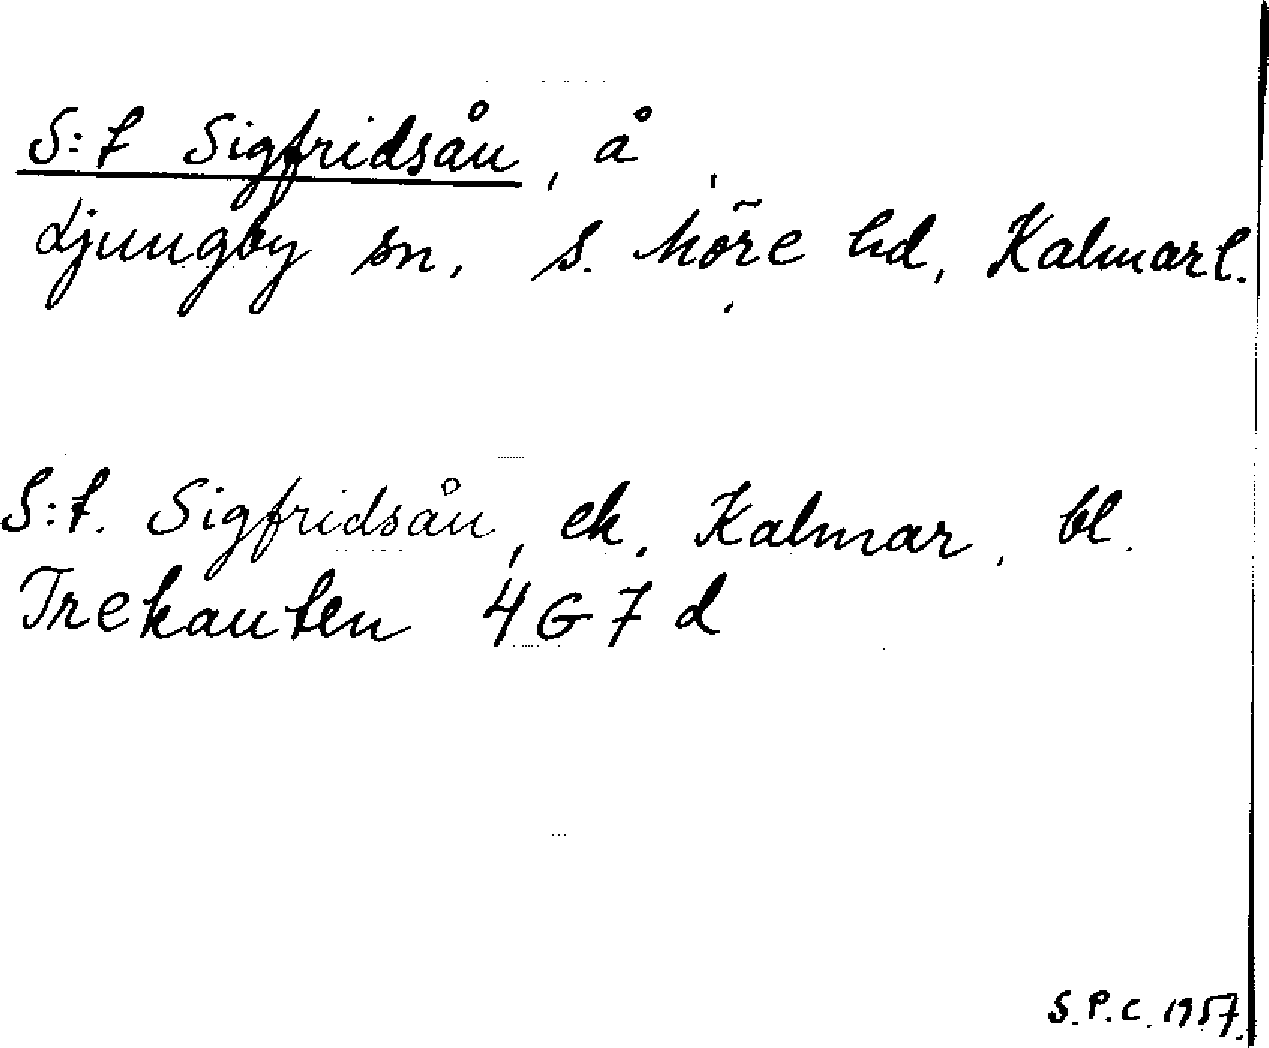 S:t Sigfridsån, å,
Ljungby sn, S. Möre hd, Kalmar l.
S:t. Sigfridsån, ek. Kalmar, bl.
Trekanten 4G7d
S.P.C. 1957.